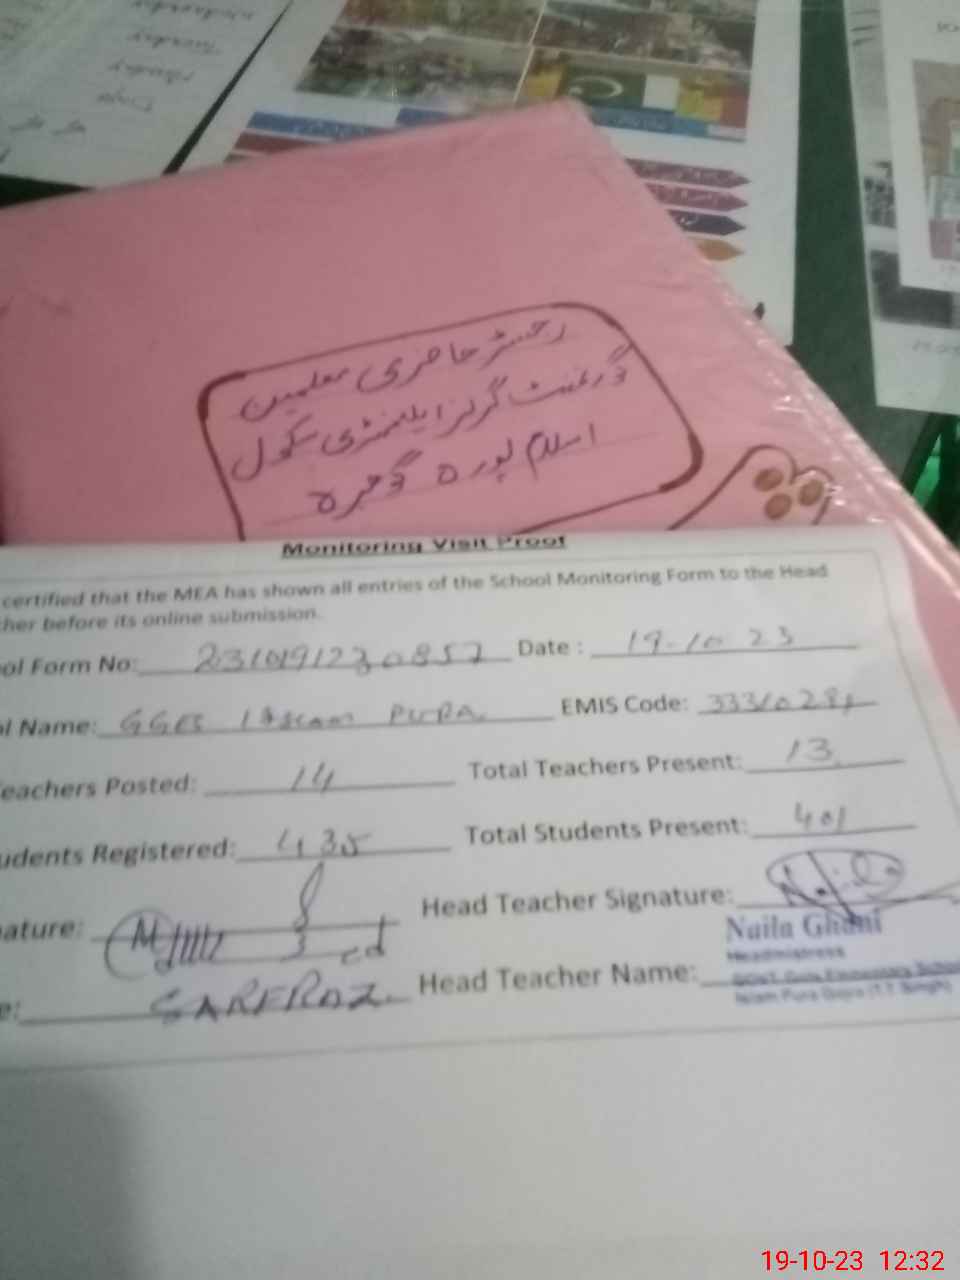 رجسٹر حاضری معلمین
گورنمنٹ گرلز ایلیمنٹری سکول
اسلام پورہ گوجرہ
Monitoring Visit Proof
certified that the MEA has shown all entries of the School Monitoring Form to the Head
cher before its online submission.
ool Form No: Date : 19-10 23
ol Name: GGES Islam PURA EMIS Code:
eachers Posted: 14 Total Teachers Present: 13
udents Registered: 435 Total Students Present: 401
ature: Head Teacher Signature: Naila
Naila Ghani
Headmistress
e: SARFRAZ Head Teacher Name: Govt. Girls Elementary School
Islam Pura Gojra (T.T Singh)
19-10-23 12:32